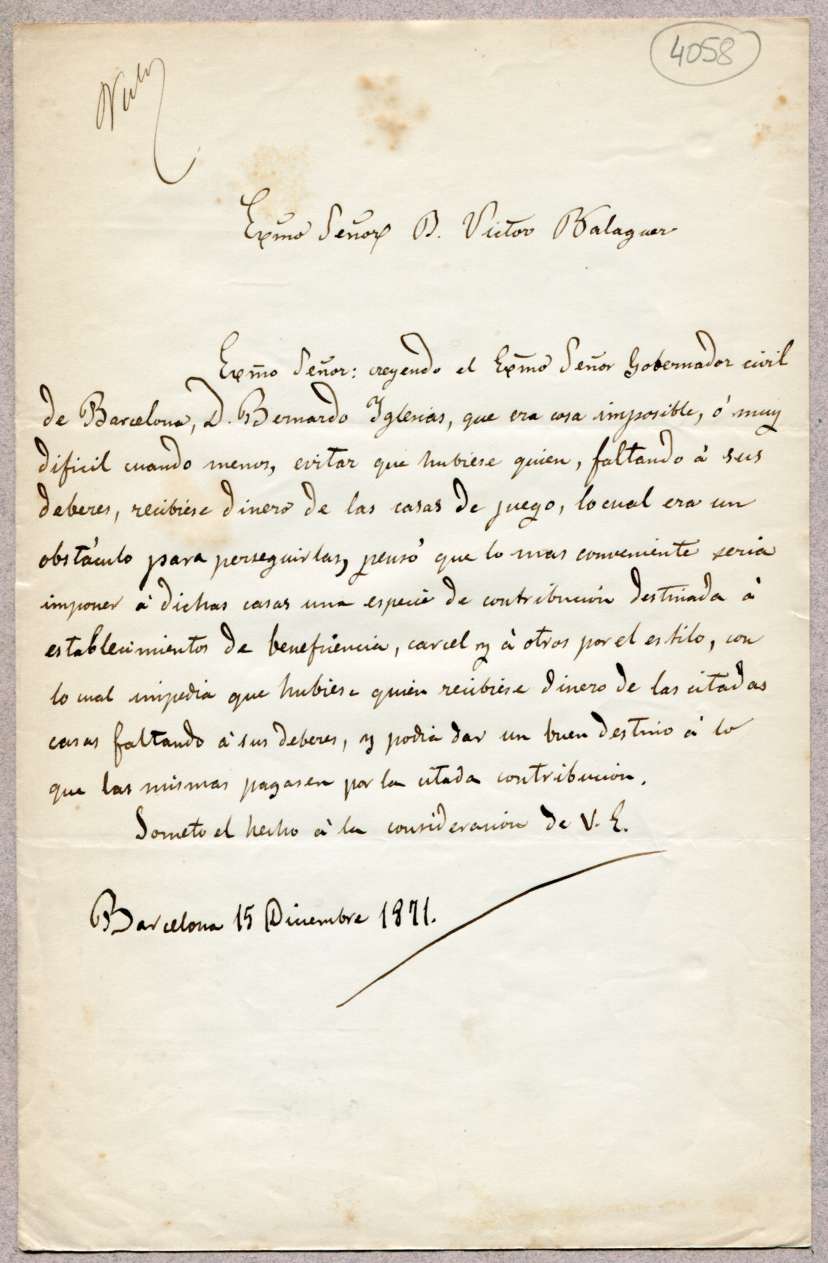 4058
Exmō Señor D. Victor Balaguer
Exm̄o Señor: creyendo el Exm̄o Señor Gobernador civil
de Barcelona, D. Bernardo Iglesias, que era cosa imposible, ó muy
dificil cuando menos, evitar que hubiese quien, faltando á sus
deberes, recibiese dinero de las casas de juego, lo cual era un
obstáculo para perseguirlas, pensó que lo mas conveniente seria
imponer á dichas casas una especie de contribucion destinada á
establecimientos de beneficencia, carcel y á otros por el estilo, con
lo cual impedia que hubiese quien recibiese dinero de las citadas
casas faltando á sus deberes, y podia dar un buen destino á lo
que las mismas pagasen por la citada contribucion.
Someto el hecho á la consideracion de V. E.
Barcelona 15 Diciembre 1871.